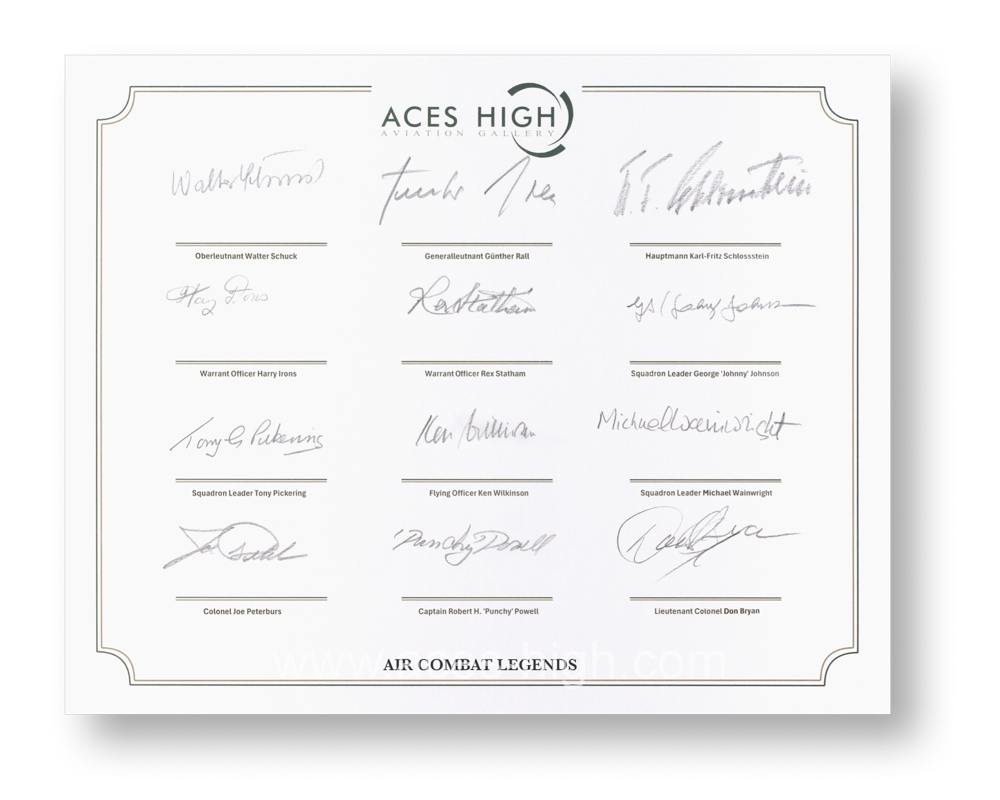 ACES HIGH
AVIATION GALLERY
Oberleutnant Walter Schuck
Generalleutnant Günther Rall
Hauptmann Karl-Fritz Schlossstein
Warrant Officer Harry Irons
Warrant Officer Rex Statham
Squadron Leader George 'Johnny' Johnson
Tony G Pickering
Ken Wilkinson
Michael Wainwright
Squadron Leader Tony Pickering
Flying Officer Ken Wilkinson
Squadron Leader Michael Wainwright
'Punchy' Powell
Colonel Joe Peterburs
Captain Robert H. 'Punchy' Powell
Lieutenant Colonel Don Bryan
AIR COMBAT LEGENDS
www.aces-high.com